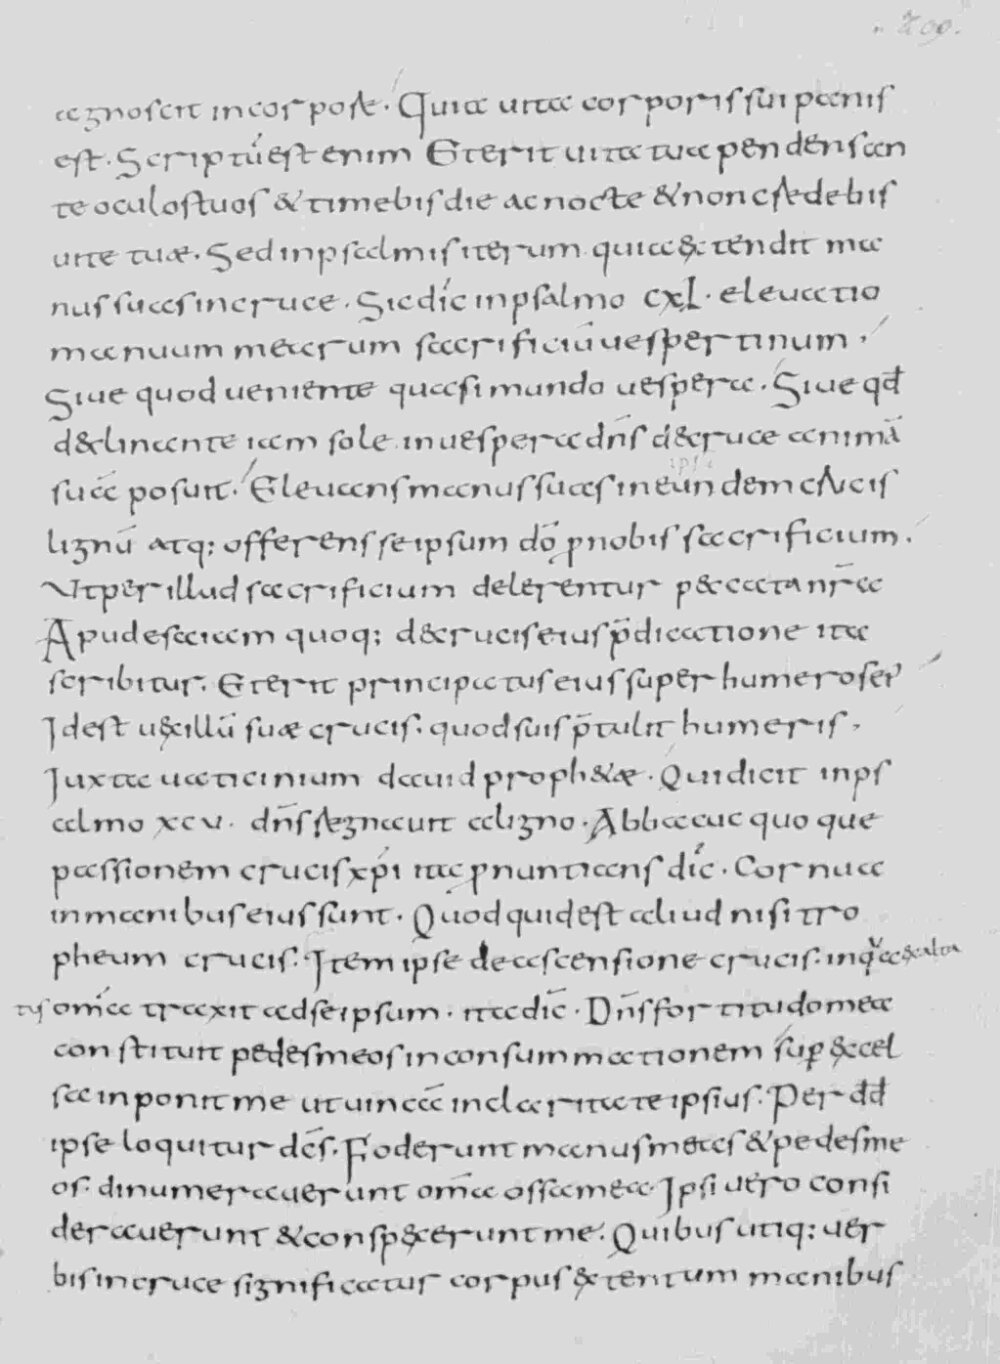 209.
agnoscit in corpore. Quia uita corporis sui panis
est. Scriptū est enim Et erit uita tua pendens an
te oculos tuos & timebis die ac nocte & non credebis
uite tuæ. Sed in psalmis iterum quia extendit ma
nus suas in cruce. Sic dic̄ in psalmo CXL. eleuatio
manuum mearum sacrificiū uespertinum.
Siue quod ueniente quasi mundo uespera. Siue qđ
declinante iam sole in uespera dn̄s de cruce animā
suā posuit. Eleuans manus suas in eundem crucis
lignū atq; offerens se ipsum dō pnobis sacrificium.
Ut per illud sacrificium delerentur peccata nr̄a
Apud esaiam quoq; de crucis eius p̄dicatione ita
scribitur. Et erit principatus eius super humeros ei'
Id est uexillū suæ crucis. quod suis p̄tulit humeris.
Iuxta uaticinium dauid proph&æ. Qui dicit in ps
almo xcv. dn̄s regnauit a ligno. Abbacuc quoque
passionem crucis xp̄i ita pnuntians dic̄. Cornua
in manibus eius sunt. Quod quid est aliud nisi tro
pheum crucis. Item ipse de ascensione crucis. in qua exalta
tus om̄a traxit ad se ipsum. ita dic̄. Dn̄s fortitudo mea
constituit pedes meos in consummationem sup excel
sa inponit me ut uincā in claritate ipsius. Per dd̄
ipse loquitur dc̄s. Foderunt manus meas & pedes me
os. dinumerauerunt om̄a ossa mea. Ipsi uero consi
derauerunt & conspexerunt me. Quibus utiq; uer
bis in cruce significatur corpus extentum manibus